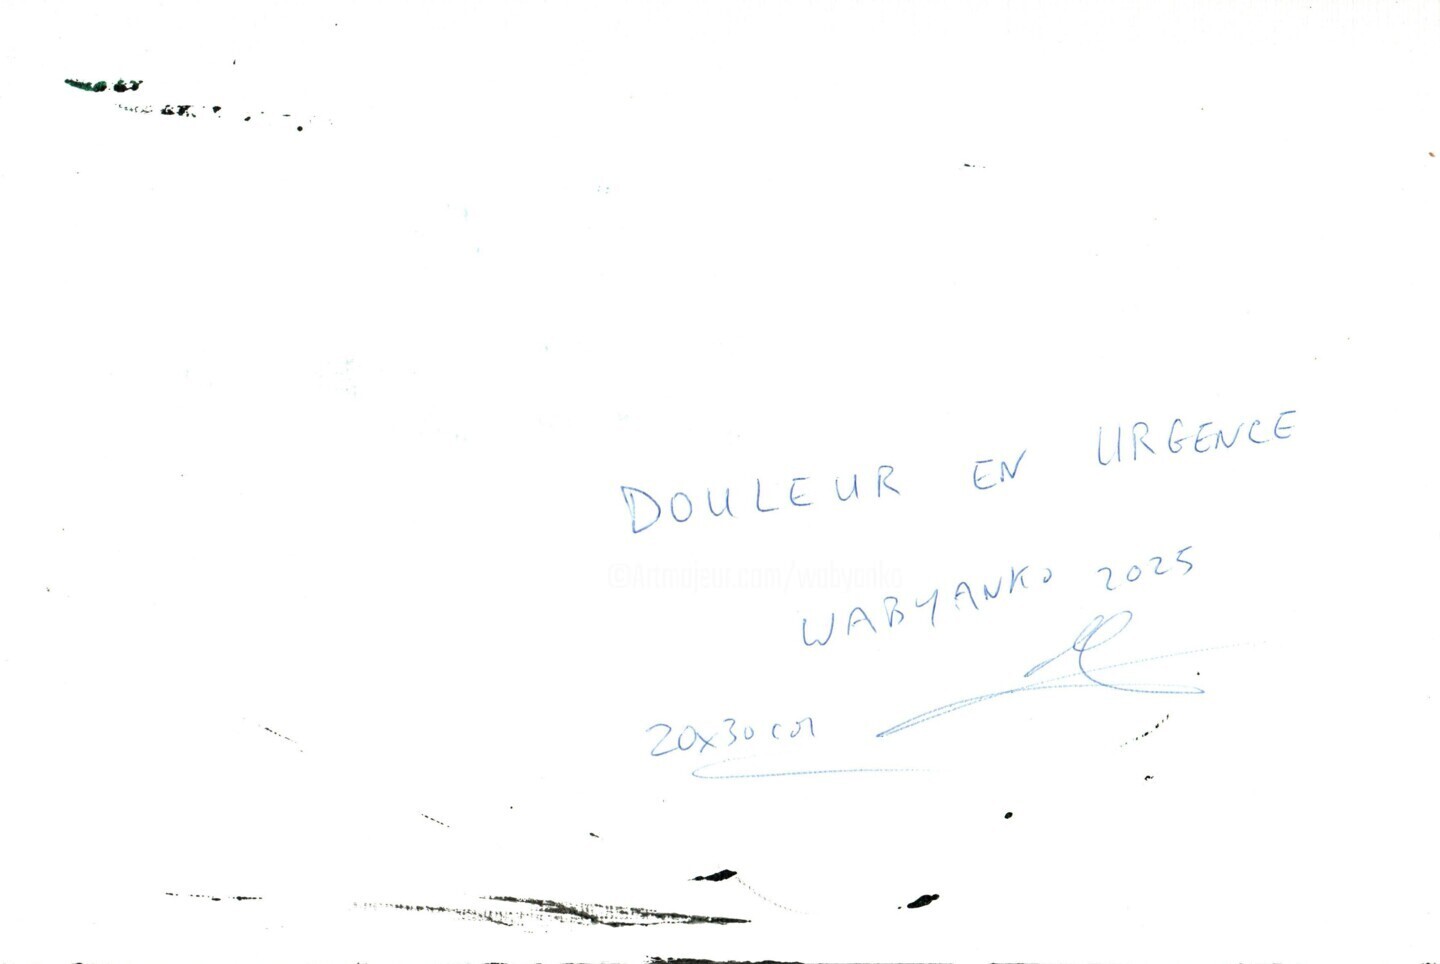 DOULEUR EN URGENCE
©Artmajeur.com/wabyanko
WABYANKO 2025
20x30cm